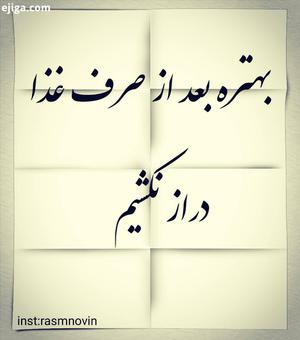 ejiga.com
بهتره بعد از صرف غذا
دراز نکشیم
inst:rasmnovin